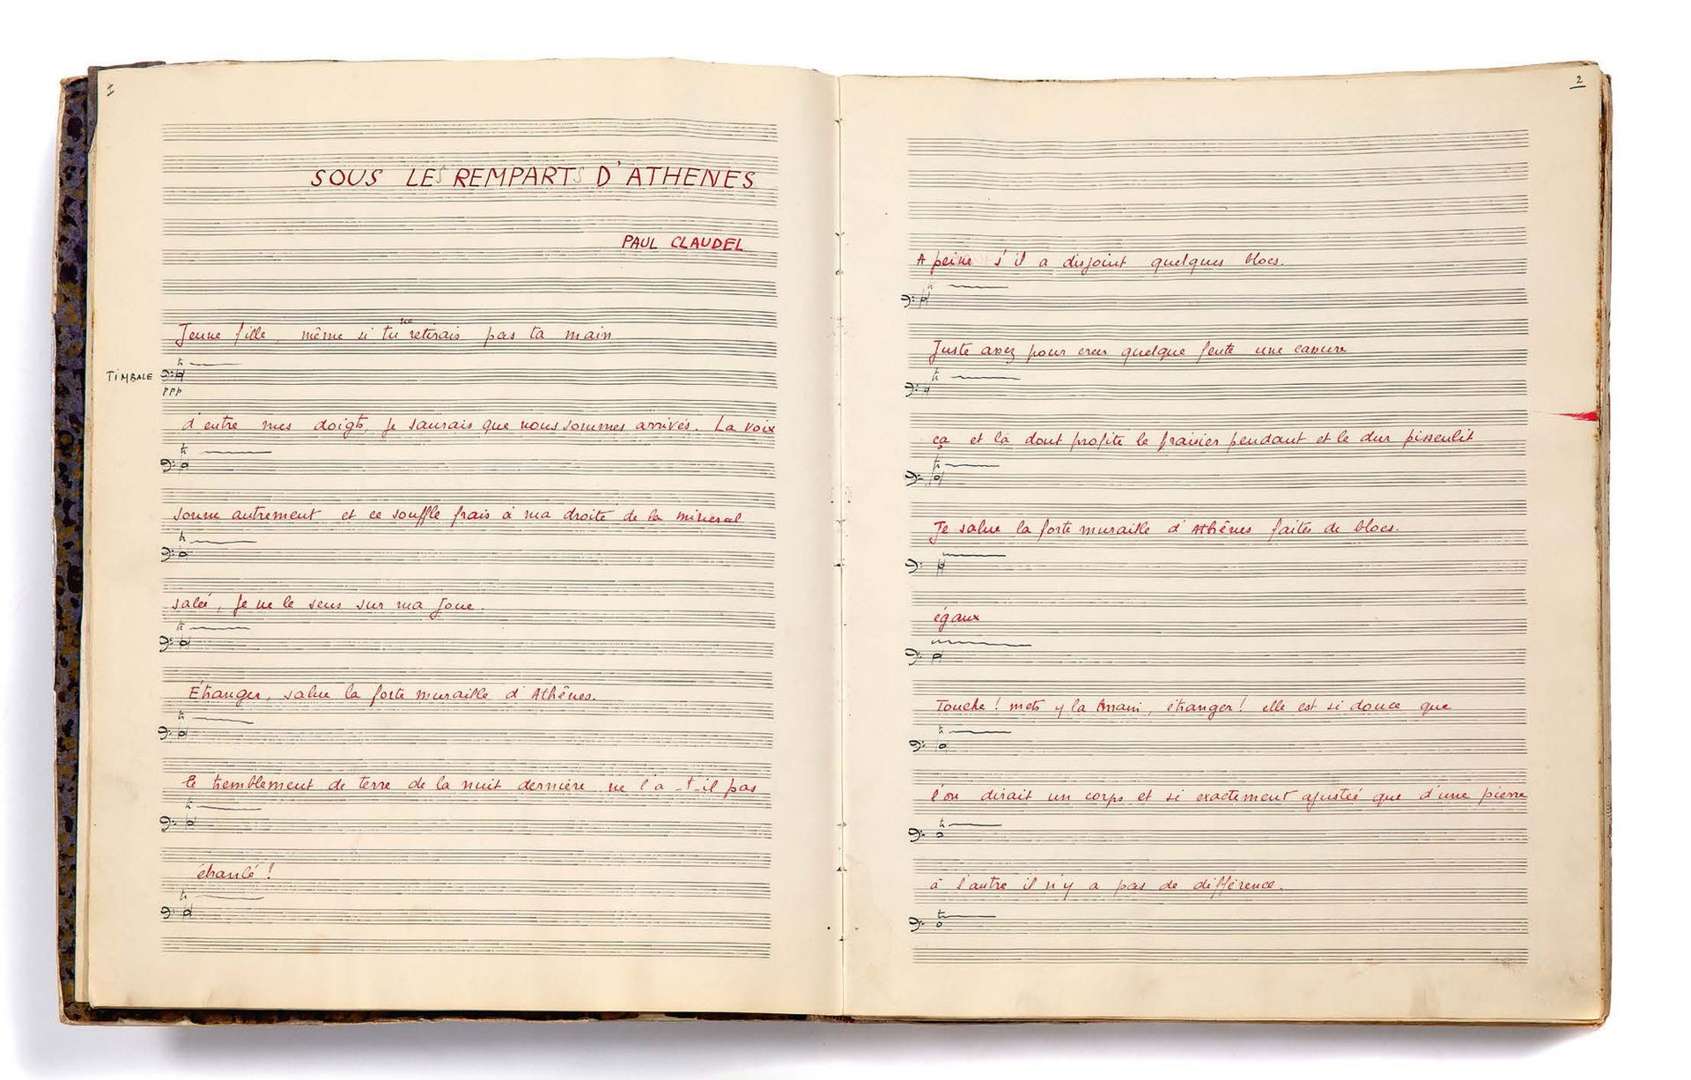 1
SOUS LES REMPARTS D'ATHENES
PAUL CLAUDEL
Jeune fille, même si tu ne retirais pas ta main
TIMBALE
ppp
d'entre mes doigts, je saurais que nous sommes arrivés. La voix
sonne autrement et ce souffle frais à ma droite de la mineral
salée, je ne le sens sur ma joue.
Etranger, salue la forte muraille d'Athênes.
le tremblement de terre de la nuit dernière ne l'a -t-il pas
ébranlé !
2
A peine s'il a disjoint quelques blocs.
Juste assez pour creer quelque fente une
ça et là dont profite le fraisier pendant et le dur pissenlit
Je salue la forte muraille d'Athênes faites de blocs.
égaux
Touche ! mets y la main, étranger ! elle est si douce que
l'on dirait un corps et si exactement ajustée que d'une pierre
à l'autre il n'y a pas de différence.